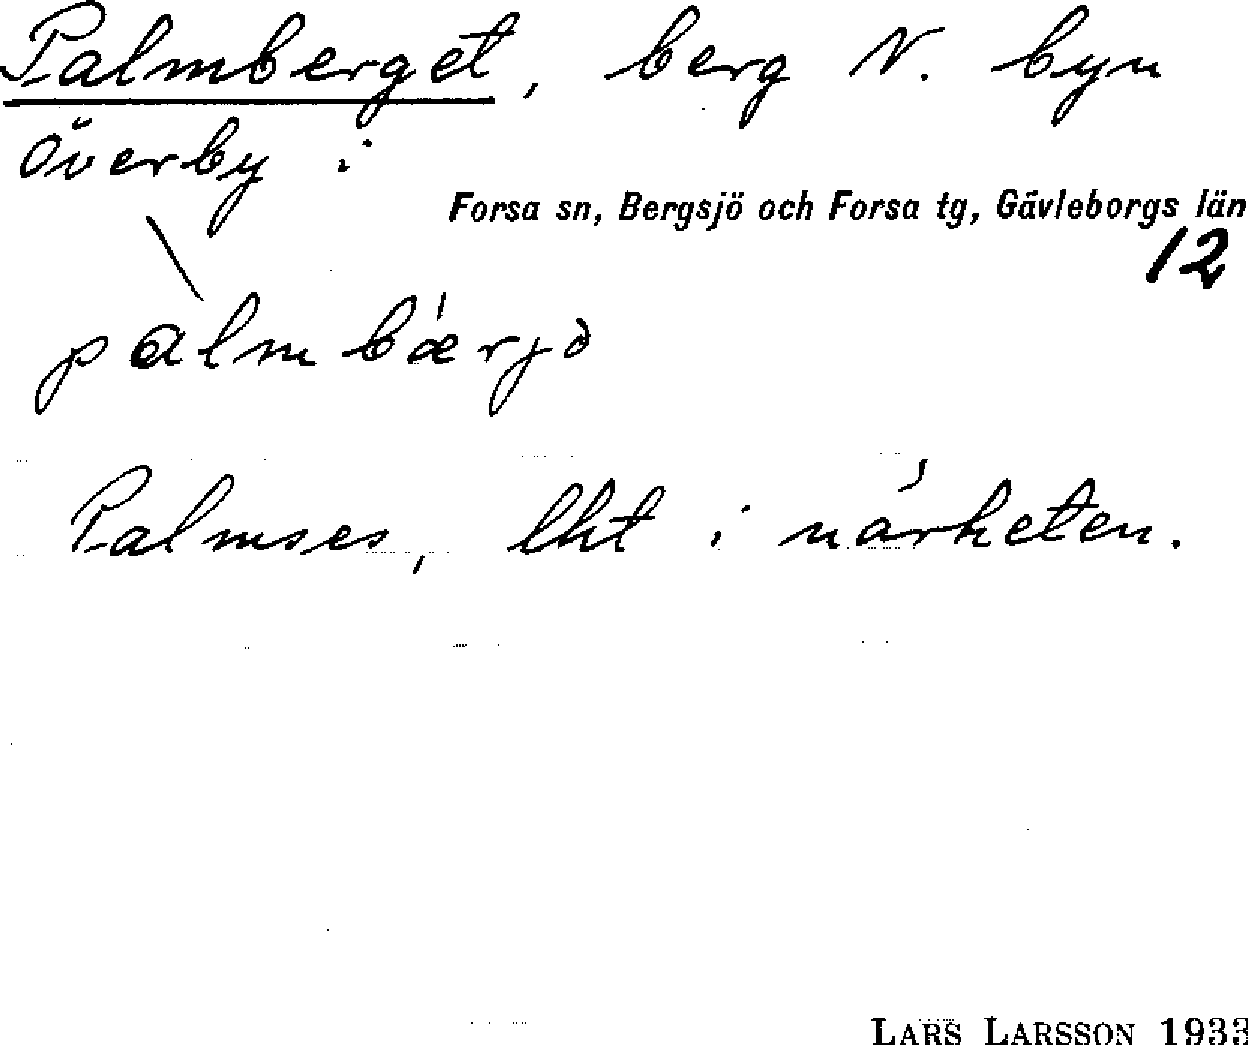 Palmberget, berg N. byn
Överby i
Forsa sn, Bergsjö och Forsa tg, Gävleborgs län
12
pàlmbǽrjə
Palmses, lht i närheten.
LARS LARSSON 1933